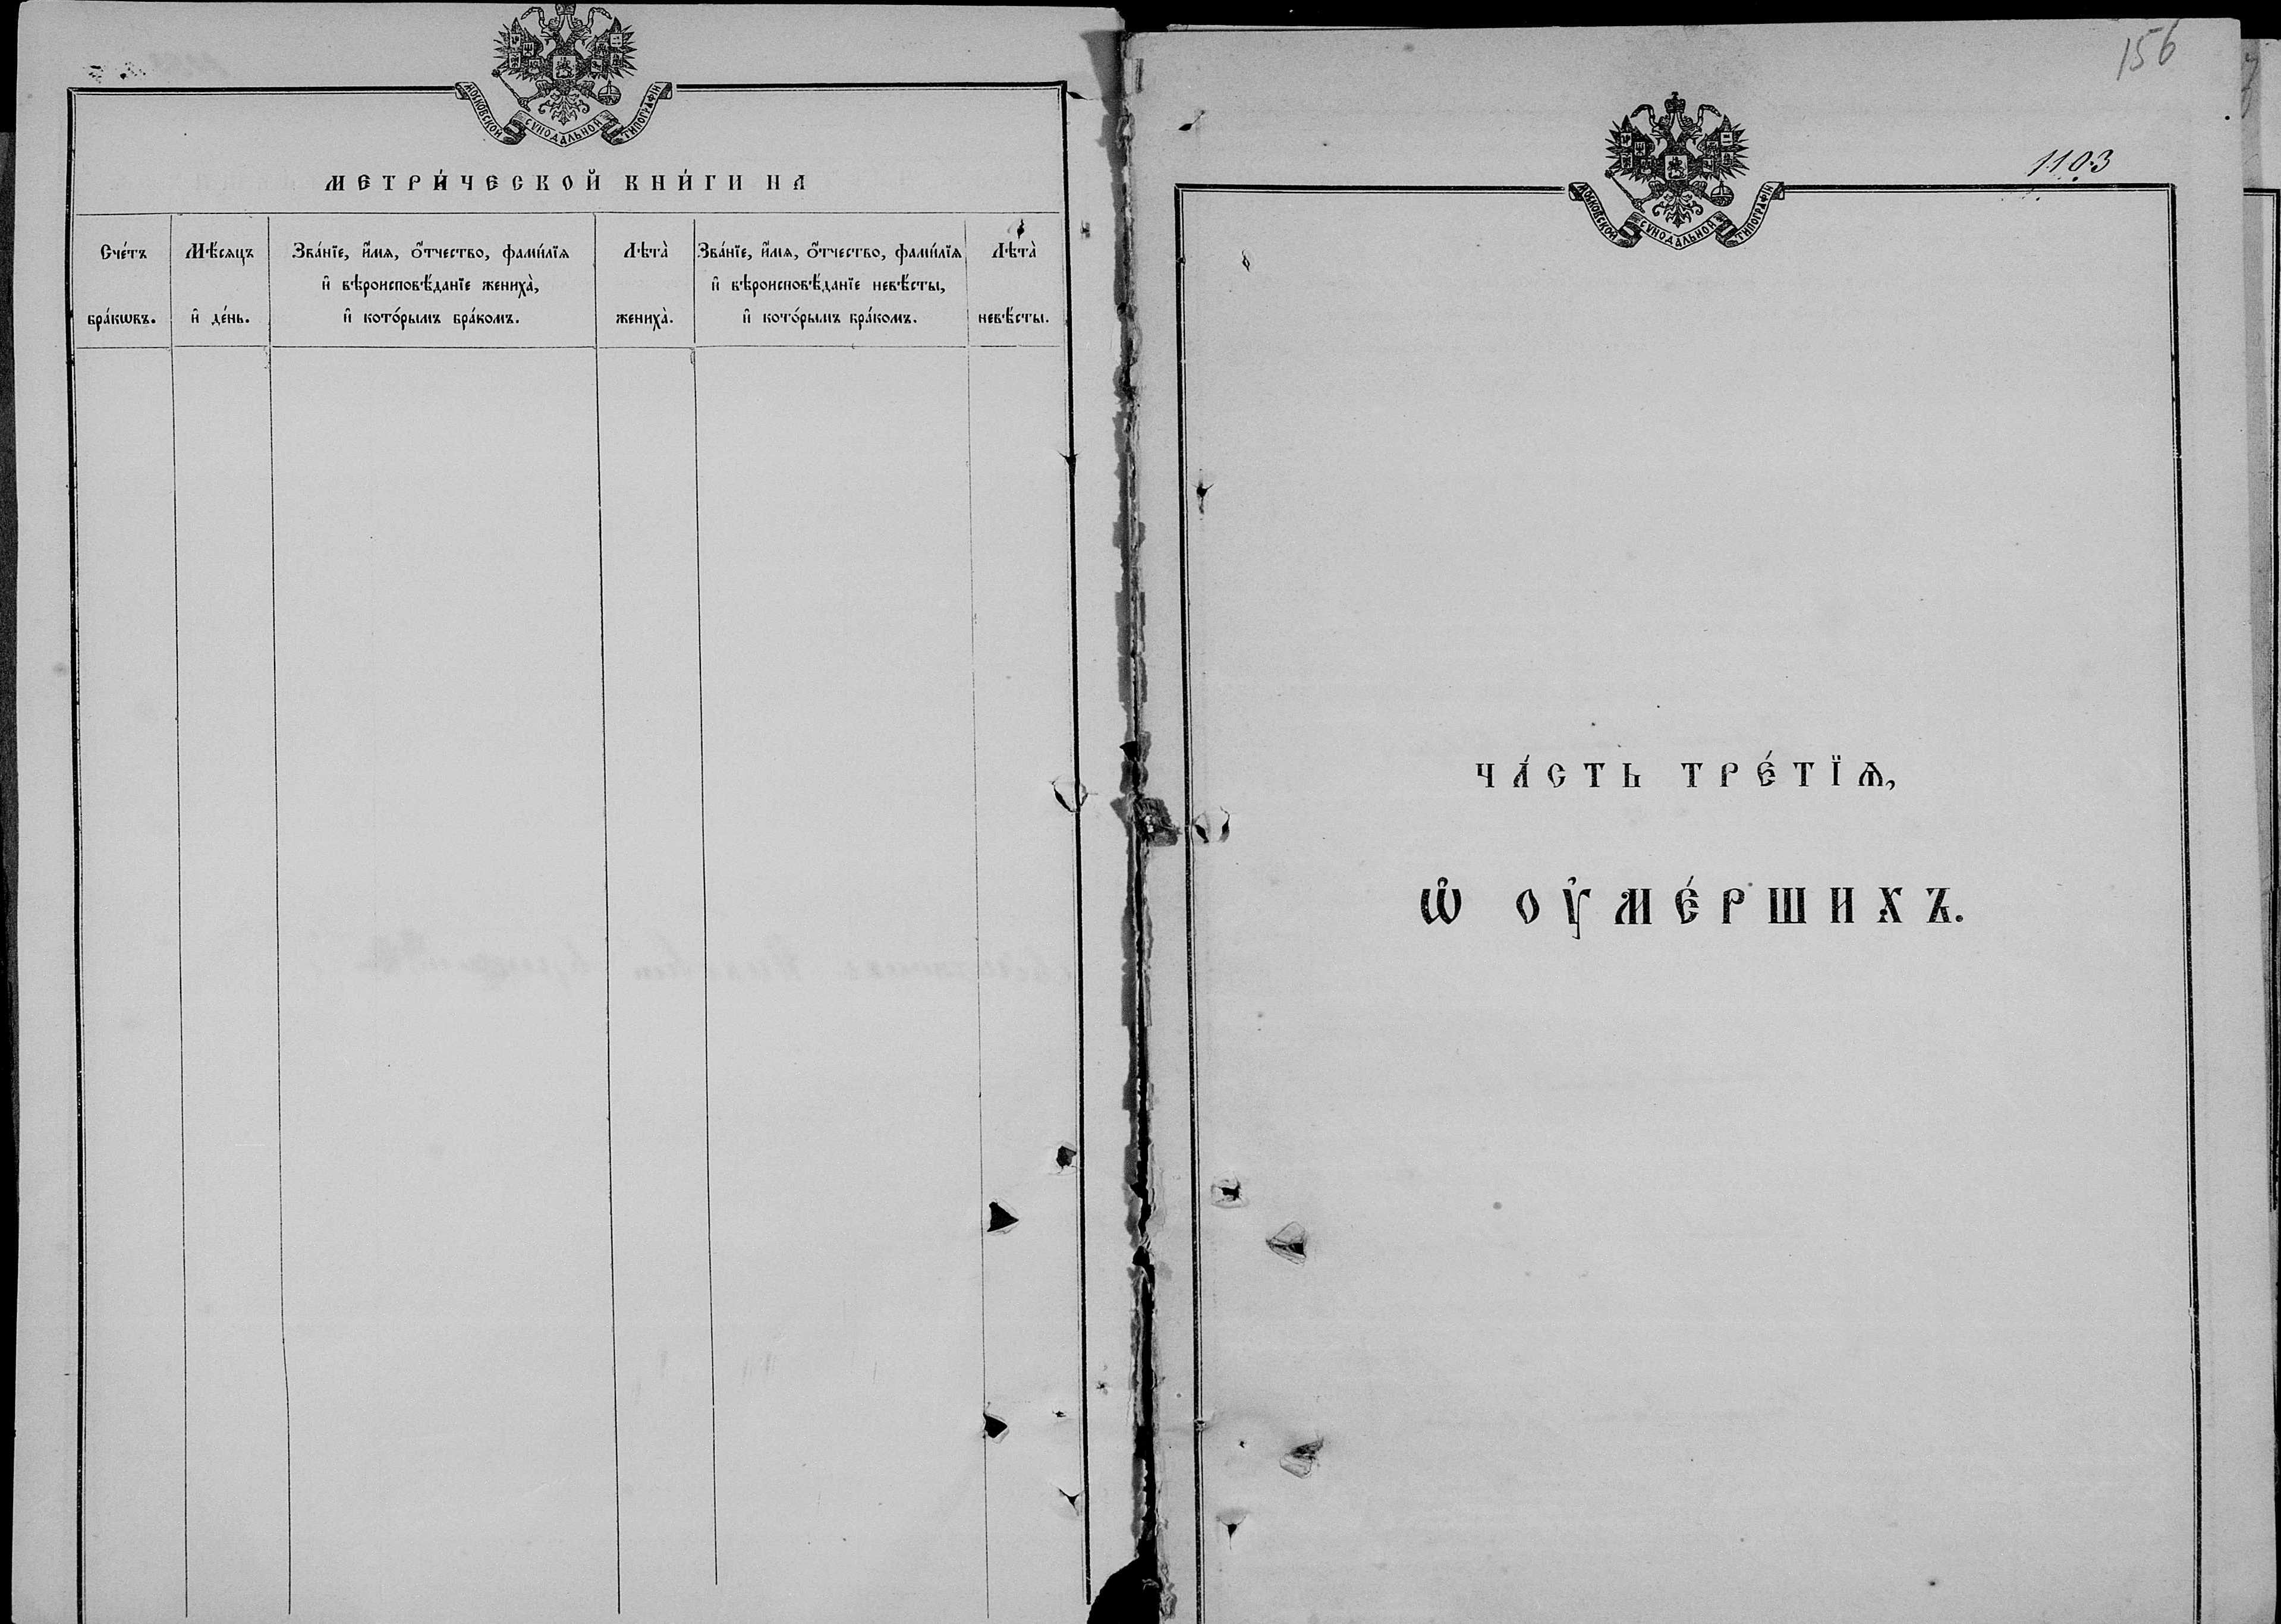 МОСКОВСКОЙ СѴНОДАЛЬНОЙ ТИПОГРАФІИ
МЕТРИ́ЧЕСКОЙ КНИ́ГИ НА
Сче́тъ
бра́кѡвъ.
Мѣ́сяцъ
и҆ де́нь.
Зва́нїе, и҆́мѧ, ѻ҆́тчество, фами́лїѧ
и҆ вѣроисповѣ́данїе жениха̀,
и҆ кото́рымъ бра́комъ.
Лѣта̀
жениха̀.
Зва́нїе, и҆́мѧ, ѻ҆́тчество, фами́лїѧ
и҆ вѣроисповѣ́данїе невѣ́сты,
и҆ кото́рымъ бра́комъ.
Лѣта̀
невѣ́сты.
156
1103
МОСКОВСКОЙ СѴНОДАЛЬНОЙ ТИПОГРАФІИ
ЧА́СТЬ ТРЕ́ТЇѦ,
Ѡ҆ ОУ҆МЕ́РШИХЪ.